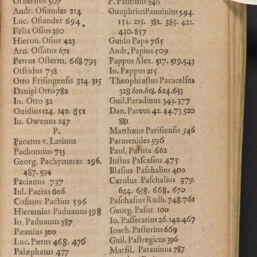 Orbellus 507
Andr. Osiander 214
Luc. Osiander 694
Felix Osius 380
Hieron. Osius 423
Arn. Ossatus 671
Petrus Osterm. 668.795
Ostfridus 758
Otto Frisingensis 314.315
Daniel Otto 782
Io. Otto 32
Ouidius 124. 142. 851
Io. Owenus 147
P.
Pacatus v. Latinus
Pachomius 735
Georg. Pachymeres 296.
487.594
Pacianus 737
Iul. Pacius 606
Cosmus Pacius 596
Hieremias Paduanus 398
Io. Paduanus 587
Pæanius 300
Luc. Pætus 468. 476
Palæphatus 477
P. Pantinus 240
Onuphrius Panuinius 594.
151. 215. 382. 385. 421.
430. 857
Guido Papa 765
Andr. Papius 509
Pappus Alex. 517. 519.543
Io. Pappus 215
Theophrastus Paracelsus
328.610.618. 624.651
Guil. Paradinus 345.377
Dan. Pareus 42. 44.73.520
881
Matthæus Parisensis 346
Parmenides 596
Paul. Paruta 662
Iustus Pascasius 475
Blasius Paschalius 400
Carolus Paschalius 379.
634. 678. 668. 670
Paschasius Radb. 748.761
Georg. Pasor 100
Io. Passeratius 26.142.467
Ioach. Pastorius 669
Guil. Pastregicus 396
Marsil. Patauinus 787